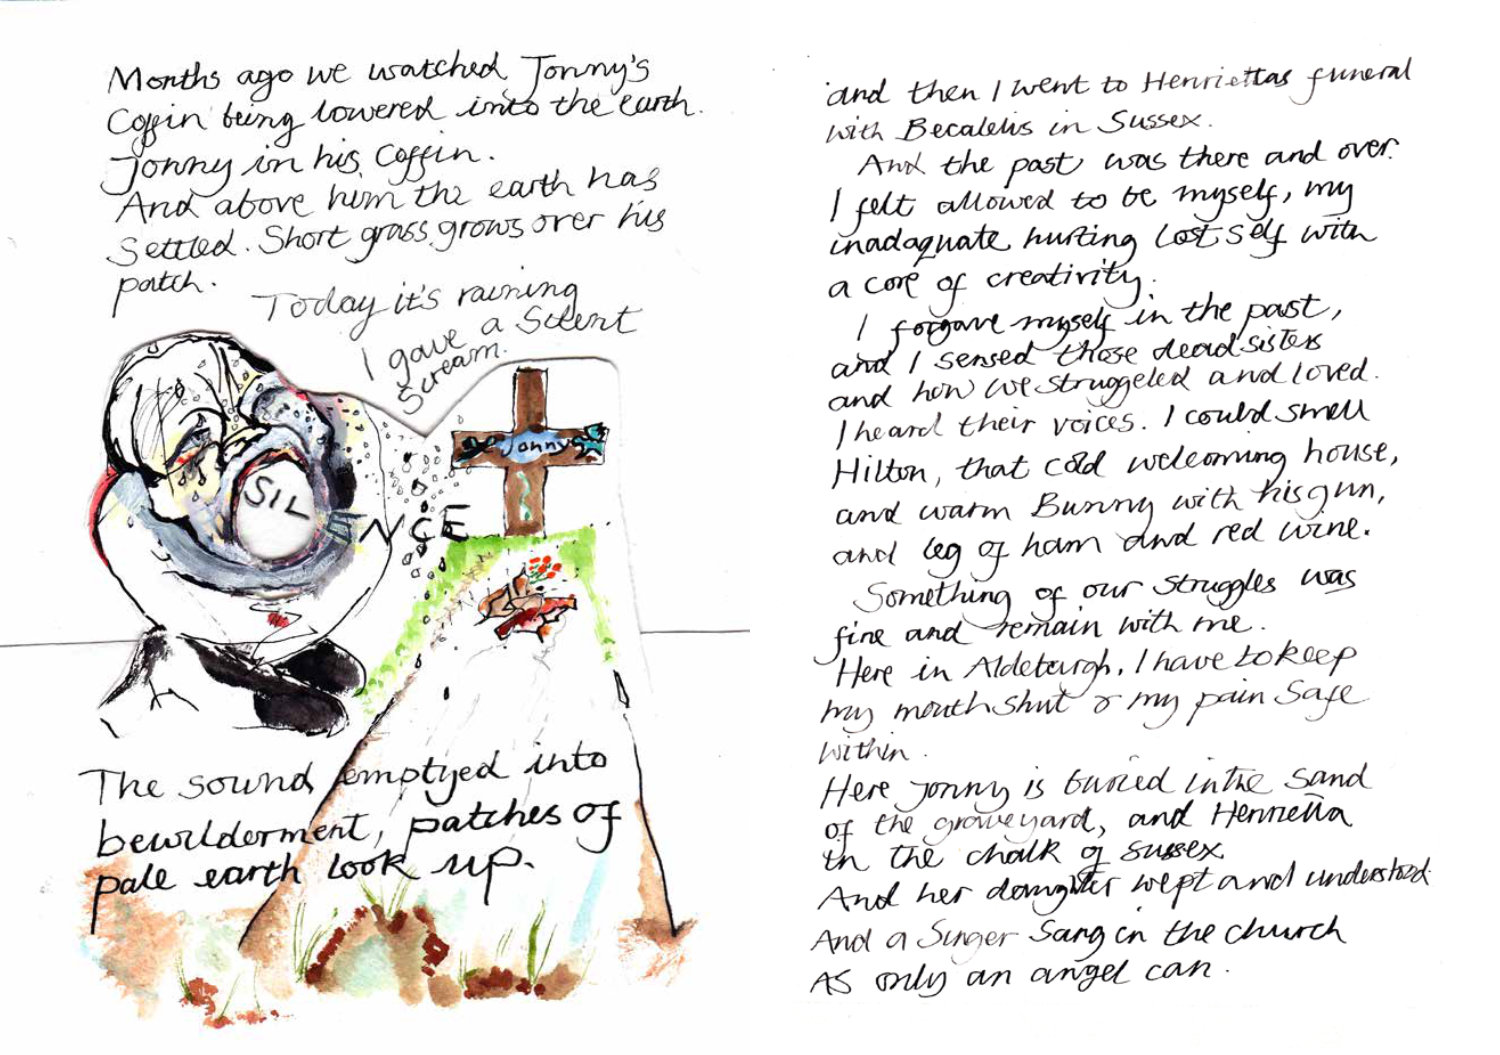 Months ago we watched Jonny's
Coffin being lowered into the earth.
Jonny in his Coffin.
And above him the earth has
Settled. Short grass grows over his
patch.
Today it's raining
I gave a Silent
Scream.
SIL
ENCE
Jonny
The sound emptyed into
bewilderment, patches of
pale earth look up.
and then I went to Henriettas funeral
with in Sussex.
And the past was there and over.
I felt allowed to be myself, my
inadaquate hurting lost self with
a core of creativity.
I forgave myself in the past,
and I sensed those dead sisters
and how we struggeled and loved.
I heard their voices. I could smell
Hilton, that cold welcoming house,
and warm Bunny with his gun,
and leg of ham and red wine.
Something of our struggles was
fine and remain with me.
Here in Aldeburgh, I have to keep
my mouth shut & my pain Safe
within.
Here Jonny is buried in the Sand
of the graveyard, and Henrietta
in the chalk of Sussex.
And her daughter wept and understood.
And a Singer Sang in the church
As only an angel can.